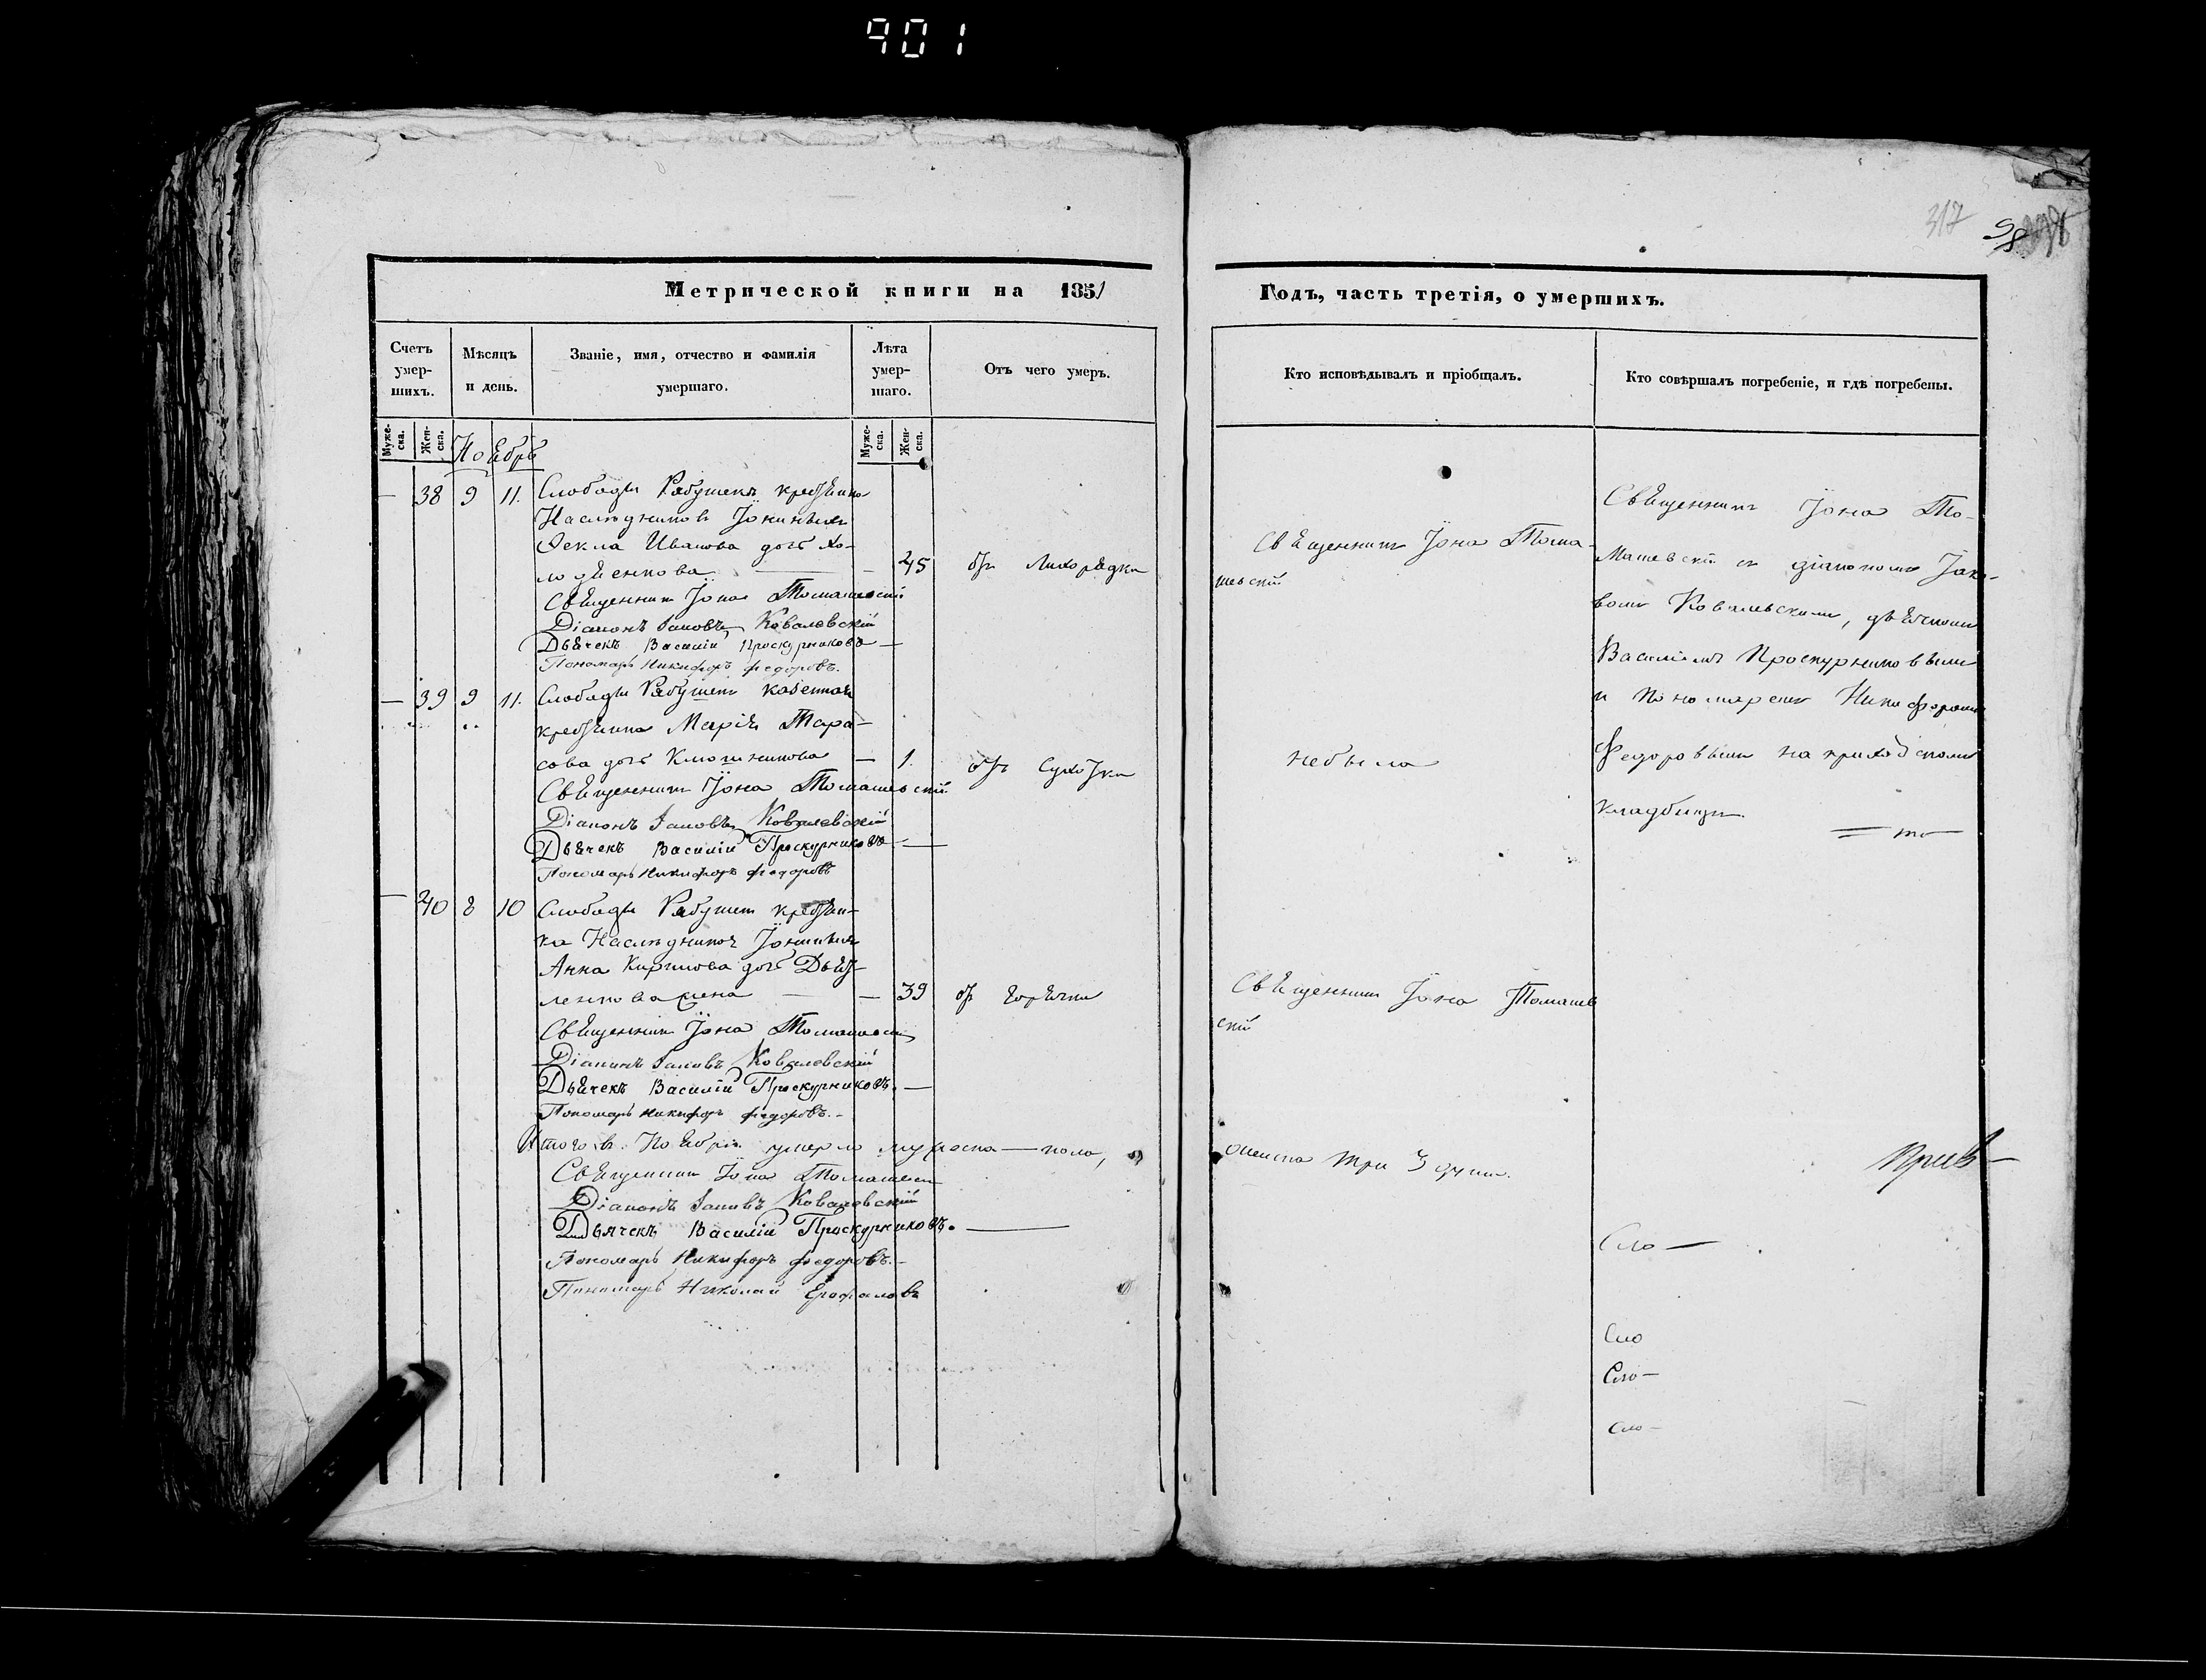 901
317
98
Метрической книги на 1851
Годъ, часть третія, о умершихъ.
Счетъ умер-шихъ.
Мѣсяцъ и день.
Званіе, имя, отчество и фамилія умершаго.
Лѣта умер-шаго.
Отъ чего умеръ.
Кто исповѣдывалъ и пріобщалъ.
Кто совѣршалъ погребеніе, и гдѣ погребены.
Муже-ска.
Жен-ска.
Ноябрь
Муже-ска.
Жен-ска.
— 38 9 11. Слободы Рябушекъ
Наслѣдниковъ
Фекла Иванова дочь Хо-
лодЯенкова — — 45 отъ Лихорадки
Священникъ Іона Томашевскій
Діаконъ Іаковъ Ковалевскій
Дьячекъ Василій Проскурниковъ —
Пономарь Никифоръ Федоровъ.
Священникъ Іона Тома-
шевскій
— 39 9 11. Слободы Рябушекъ казенная
Марія Тара-
сова дочь Ключникова — 1.
Священникъ Іона Томашевскій
Діаконъ Іаковъ Ковалевскій
Дьячекъ Василій Проскурниковъ —
Пономарь Никифоръ Федоровъ
небыла
— 40 8 10 Слободы Рябушекъ
ка Наслѣдниковъ
Анна Кирилова дочь
жена — — 39 отъ горячки
Священникъ Іона Томашевскій
Діаконъ Іаковъ Ковалевскій
Дьячекъ Василій Проскурниковъ. —
Пономарь Никифоръ Федоровъ. —
Священникъ Іона Томашев
скій
Священникъ Іона То-
машевскій съ діакономъ Іако-
вомъ Ковалевскимъ, дьячкомъ
Василіемъ Проскурниковымъ
и пономаремъ Никифоромъ
Федоровымъ на приходскомъ
кладбищи.
Итого въ Ноябрѣ умерло мужеска — пола, а
женска три 3 души.
Священникъ Іона Томашевскій
Діаконъ Іаковъ Ковалевскій
Дьячекъ Василій Проскурниковъ. —
Пономарь Никифоръ Федоровъ. —
Пономарь Николай
Сло —
Сло
Сло —
Сло —